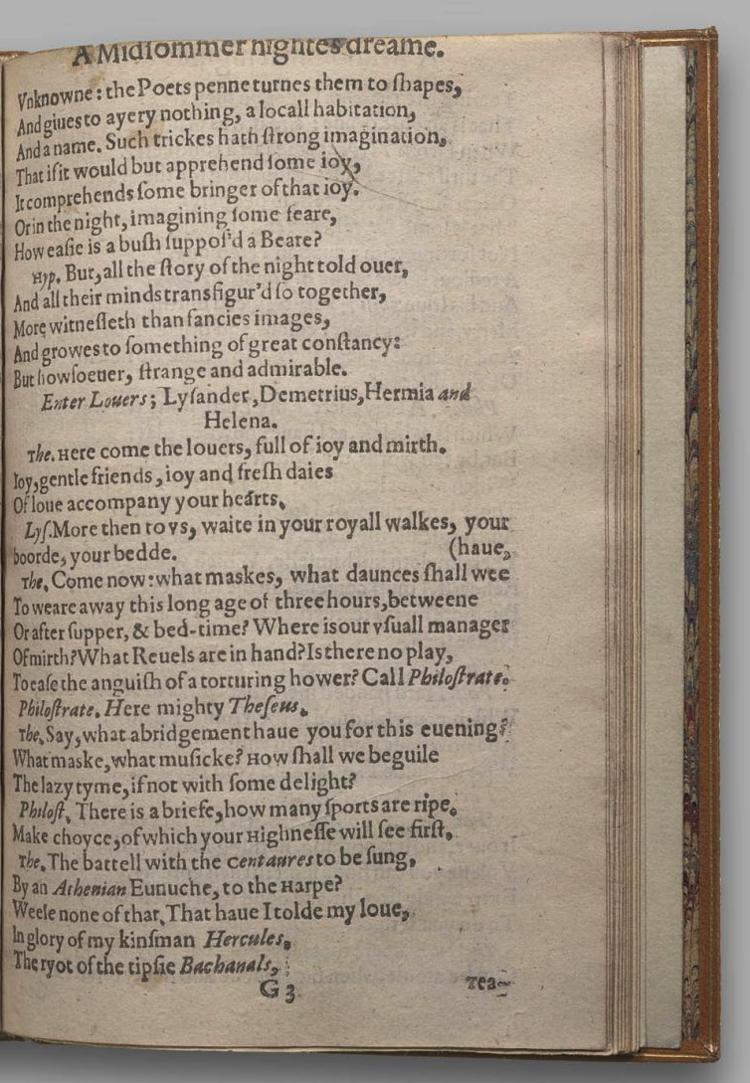 A Midsommer nightes dreame.
Vnknowne: the Poets penne turnes them to ſhapes,
And giues to ayery nothing, a locall habitation,
And a name. Such trickes hath ſtrong imagination,
That if it would but apprehend ſome ioy,
It comprehends ſome bringer of that ioy.
Or in the night, imagining ſome feare,
How eaſie is a buſh ſuppoſ'd a Beare?
Hyp. But, all the ſtory of the night told ouer,
And all their minds transfigur'd ſo together,
More witneſſeth than fancies images,
And growes to ſomething of great conſtancy:
But howſoeuer, ſtrange and admirable.
Enter Louers; Lyſander, Demetrius, Hermia and
Helena.
The. Here come the louers, full of ioy and mirth.
Ioy, gentle friends, ioy and freſh daies
Of loue accompany your hearts.
Lyſ. More then to vs, waite in your royall walkes, your
boorde, your bedde. (haue,
The. Come now: what maskes, what daunces ſhall wee
To weare away this long age of three hours, betweene
Or after ſupper, & bed-time? Where is our vſuall manager
Of mirth? What Reuels are in hand? Is there no play,
To eaſe the anguiſh of a torturing hower? Call Philoſtrate.
Philoſtrate. Here mighty Theſeus.
The. Say, what abridgement haue you for this euening?
What maske, what muſicke? How ſhall we beguile
The lazy tyme, if not with ſome delight?
Philoſt. There is a briefe, how many ſports are ripe.
Make choyce, of which your Highneſſe will ſee firſt.
The. The battell with the Centaures to be ſung,
By an Athenian Eunuche, to the Harpe?
Weele none of that. That haue I tolde my loue,
In glory of my kinſman Hercules.
The ryot of the tipſie Bachanals,
G 3 Tea-